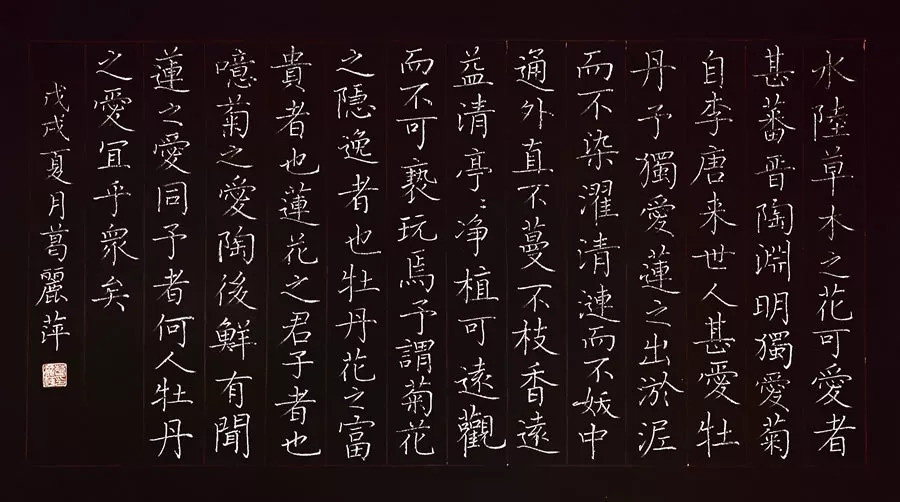 水陸草木之花可愛者
甚蕃晋陶淵明獨愛菊
自李唐来世人甚愛牡
丹予獨愛蓮之出淤泥
而不染濯清漣而不妖中
通外直不蔓不枝香遠
益清亭〻净植可遠觀
而不可亵玩焉予謂菊花
之隱逸者也牡丹花之富
貴者也蓮花之君子者也
噫菊之愛陶後鮮有聞
蓮之愛同予者何人牡丹
之愛宜乎衆矣
戊戌夏月葛麗萍